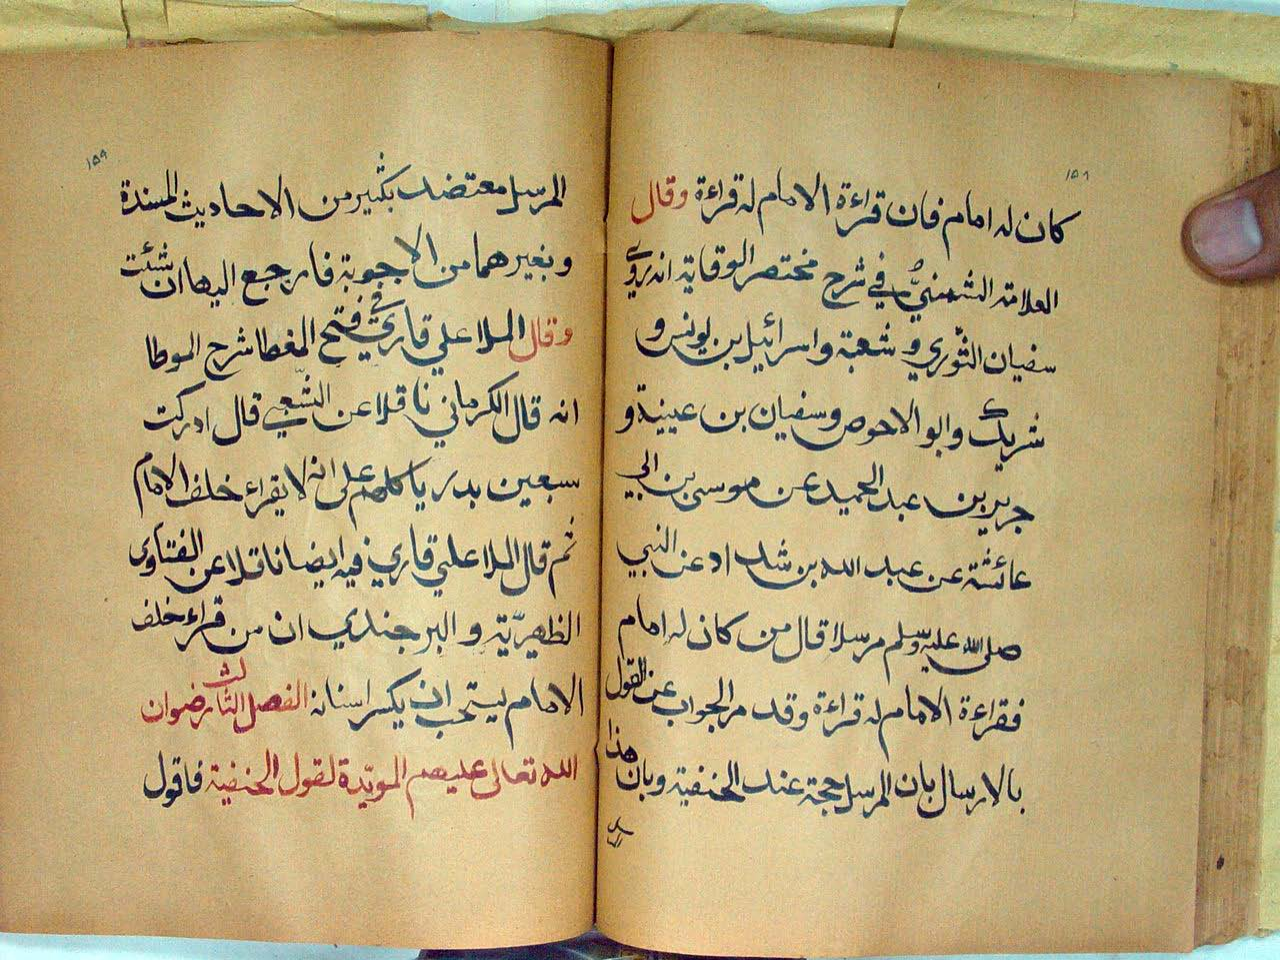 ١٥٨
كان له امام فان قراءة الامام له قراءة وقال
العلامة الشمنيُّ في شرح مختصر الوقاية انه يروي
سفيان الثوري وشعبة واسرائيل بن يونس و
شريك وابو الاحوص وسفيان بن عيينة و
جرير بن عبد الحميد عن موسى بن ابي
عائشة عن عبد الله بن شداد عن النبي
صلى الله عليه وسلم مرسلا قال من كان له امام
فقراءة الامام له قراءة وقد مر الجواب عن القول
بالارسال بان المرسل حجة عند الحنفية وبان هذا
المرسل
١٥٩
المرسل معتضد بكثير من الاحاديث المسندة
وبغيرهما من الاجوبة فارجع اليها ان شئت
وقال الملا علي قاري في فتح المغطا شرح الموطا
انه قال الكرماني ناقلا عن الشعبي قال ادركت
سبعين بدريا كلهم على انه لا يقراء خلف الامام
ثم قال الملا علي قاري فيه ايضا ناقلا عن الفتاوى
الظهيريّة والبرجندي ان من قراء خلف
الامام يستحب ان يكسر اسنانه الفصل الثالث رضوان
الله تعالى عليهم المويدة لقول الحنفية فاقول